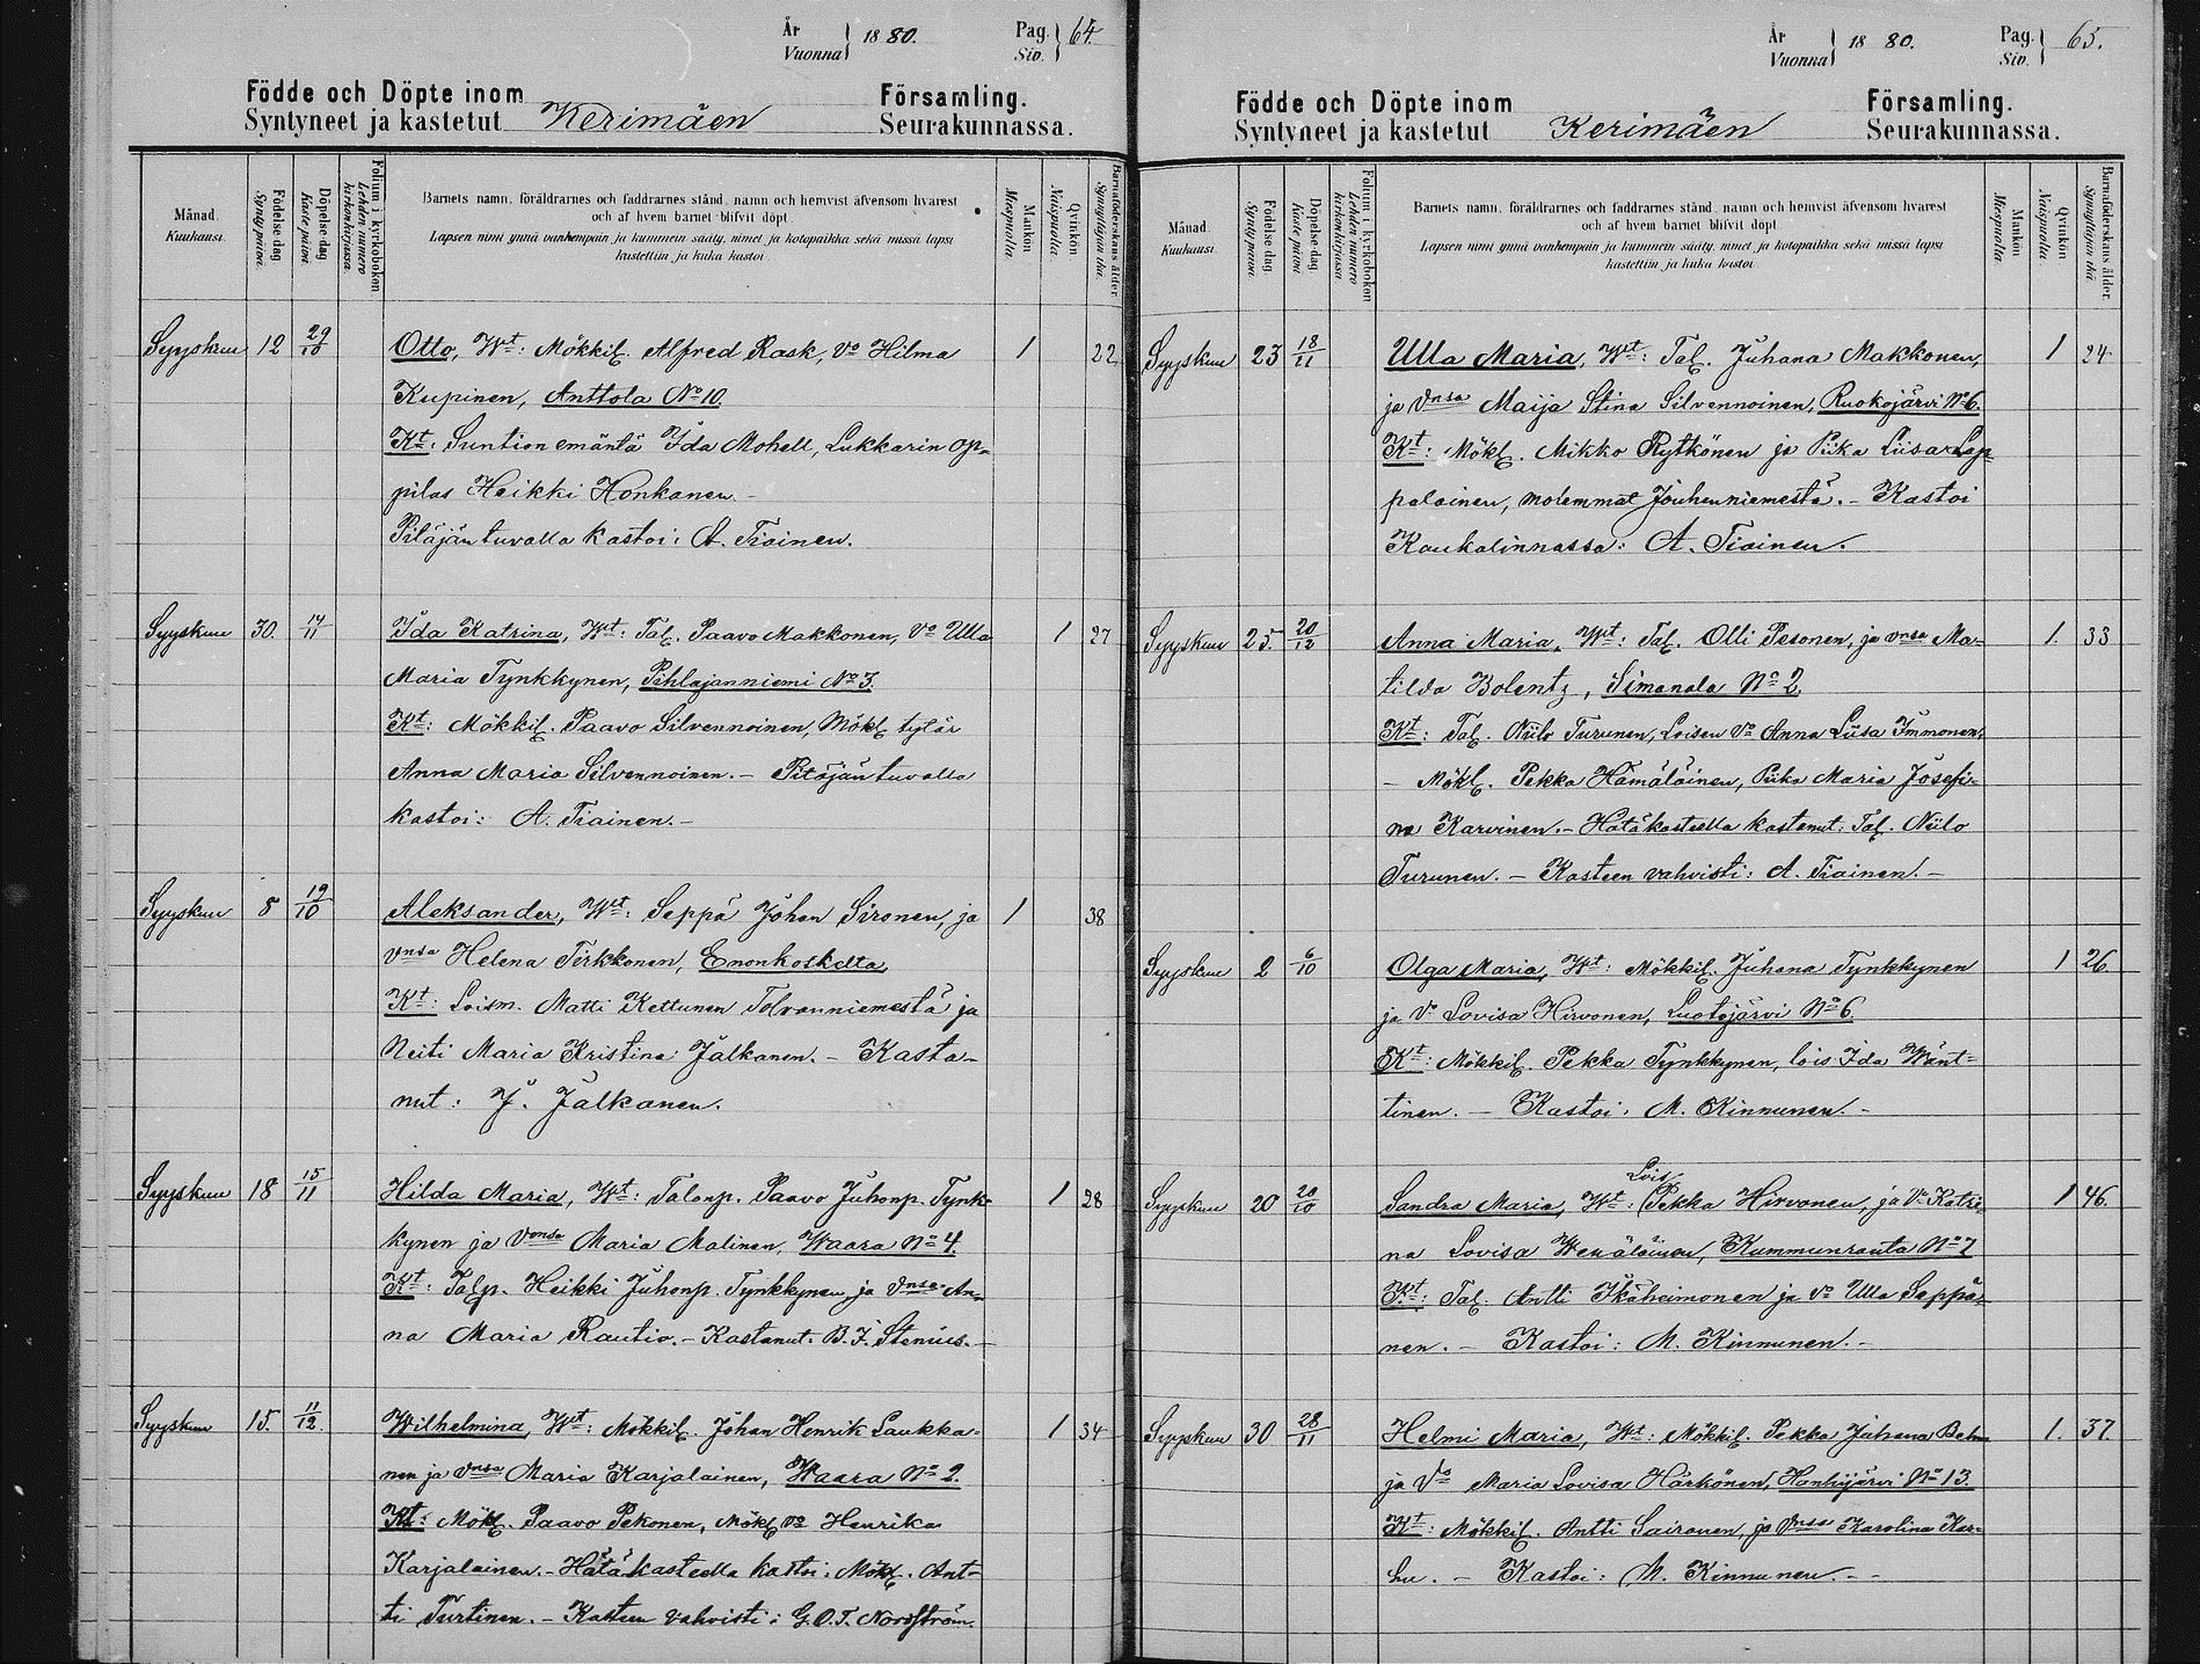 År
Vuonna 1880.
Pag.
Siv. 64.
Födde och Döpte inom Församling.
Syntyneet ja kastetut Kerimäen Seurakunnassa.
Månad.
Kuukausi.
Födelse dag.
Synty päivä.
Döpelse dag
Kaste päivä
Folium i kyrkoboken
Lehden numero
kirkonkirjassa
Barnets namn, föräldrarnes och faddrarnes stånd, namn och hemvist äfvensom hvarest
och af hvem barnet blifvit döpt.
Lapsen nimi ynnä vanhempain ja kummein sääty, nimet ja kotopaikka sekä missä lapsi
kastettiin ja kuka kastoi
Mankön
Miespuolia
Qvinkön
Naispuolia.
Barnaföderskans ålder.
Synnyttäjän ikä.
Syyskuu 12 29/10 Otto, Wt: Mökkil. Alfred Rask, vo Hilma 1 22
Kupinen, Anttola No 10.
Kt: Suntion emäntä Ida Mohell, Lukkarin op-
pilas Heikki Honkanen.-
Pitäjän tuvalla kastoi: A. Tiainen.
Syyskuu 30. 14/11 Ida Katrina, Wt: Tal. Paavo Makkonen, Vo Ulla 1 27
Maria Tynkkynen, Pihlajanniemi No 3.
Kt: Mökkil. Paavo Silvennoinen, Mökl tytär
Anna Maria Silvennoinen.- Pitäjän tuvalla
kastoi: A. Tiainen.-
Syyskuu 8 19/10 Aleksander, Wt: Seppä Johan Sironen, ja 1 38
vnsa Helena Tirkkonen, Enonkoskelta,
Kt: Loism. Matti Kettunen Tolvanniemestä ja
Neiti Maria Kristina Jalkanen.- Kasta-
nut: J. Jalkanen.
Syyskuu 18 15/11 Hilda Maria, Wt: Talonp. Paavo Juhonp. Tynk- 1 28
kynen ja Vonsa Maria Malinen, Waara No 4.
Kt: Talp. Heikki Juhonp. Tynkkynen ja Vnsa An-
na Maria Rautio.- Kastanut. B. J. Stenius.-
Syyskuu 15. 11/12. Wilhelmina, Wt: Mökkil. Johan Henrik Laukka- 1 34
nen ja vnsa Maria Karjalainen, Waara No 2.
Kt: Mökl. Paavo Pekonen, Mökl vo Henrika
Karjalainen.- Hätäkasteella kastoi: Mökl. Ant-
ti Turtinen.- Kasteen vahvisti: G. O. T. Nordström.
År
Vuonna 1880.
Pag.
Siv. 65.
Födde och Döpte inom Församling.
Syntyneet ja kastetut Kerimäen Seurakunnassa.
Månad
Kuukausi.
Födelse dag.
Synty päivä.
Döpelse dag
Kaste päivä
Folium i kyrkoboken
Lehden numero
kirkonkirjassa
Barnets namn, föräldrarnes och faddrarnes stånd, namn och hemvist äfvensom hvarest
och af hvem barnet blifvit döpt
Lapsen nimi ynnä vanhempain ja kummein sääty, nimet ja kotopaikka sekä missä lapsi
kastettiin ja kuka kastoi
Mankön
Miespuolia
Qvinkön
Naispuolia
Barnaföderskans ålder.
Synnyttäjän ikä.
Syyskuu 23 18/11 Ulla Maria, Wt: Tal. Juhana Makkonen, 1 24
ja Vnsa Maija Stina Silvennoinen, Ruokojärvi No 6.
Kt: Mökl. Mikko Rytkönen ja Piika Liisa Lap-
palainen, molemmat Jouhenniemestä.- Kastoi
Kaukalinnassa: A. Tiainen.
Syyskuu 25. 20/12 Anna Maria, Wt: Tal. Olli Pesonen, ja vnsa Ma- 1. 33
tilda Bolentz, Simanala No 2.
Kt: Tal. Niilo Turunen, Loisen Vo Anna Liisa Immonen,
- Mökl. Pekka Hämäläinen, Piika Maria Josefi-
na Karvinen.- Hätäkasteella kastanut: Tal. Niilo
Turunen.- Kasteen vahvisti: A. Tiainen.-
Syyskuu 2 6/10 Olga Maria, Wt: Mökkil. Juhana Tynkkynen 1 26
ja Vo Lovisa Hirvonen, Luotojärvi No 6.
Kt: Mökkil. Pekka Tynkkynen, lois Ida Wänt-
tinen.- Kastoi: M. Kinnunen.-
Lois
Syyskuu 20 20/10 Sandra Maria, Wt: Pekka Hirvonen, ja Vo Katri- 1 46.
na Lovisa Wenäläinen, Kummunranta No 7
Kt: Tal. Antti Ikäheimonen ja vo Ulla Seppä-
nen.- Kastoi: M. Kinnunen.-
Syyskuu 30 28/11 Helmi Maria, Wt: Mökkil. Pekka Juhana Behm 1. 37.
ja Vo Maria Lovisa Härkönen, Hanhijärvi No 13.
Kt: Mökkil. Antti Sairanen, ja Vnsa Karolina Kar-
hu.- Kastoi: M. Kinnunen.--